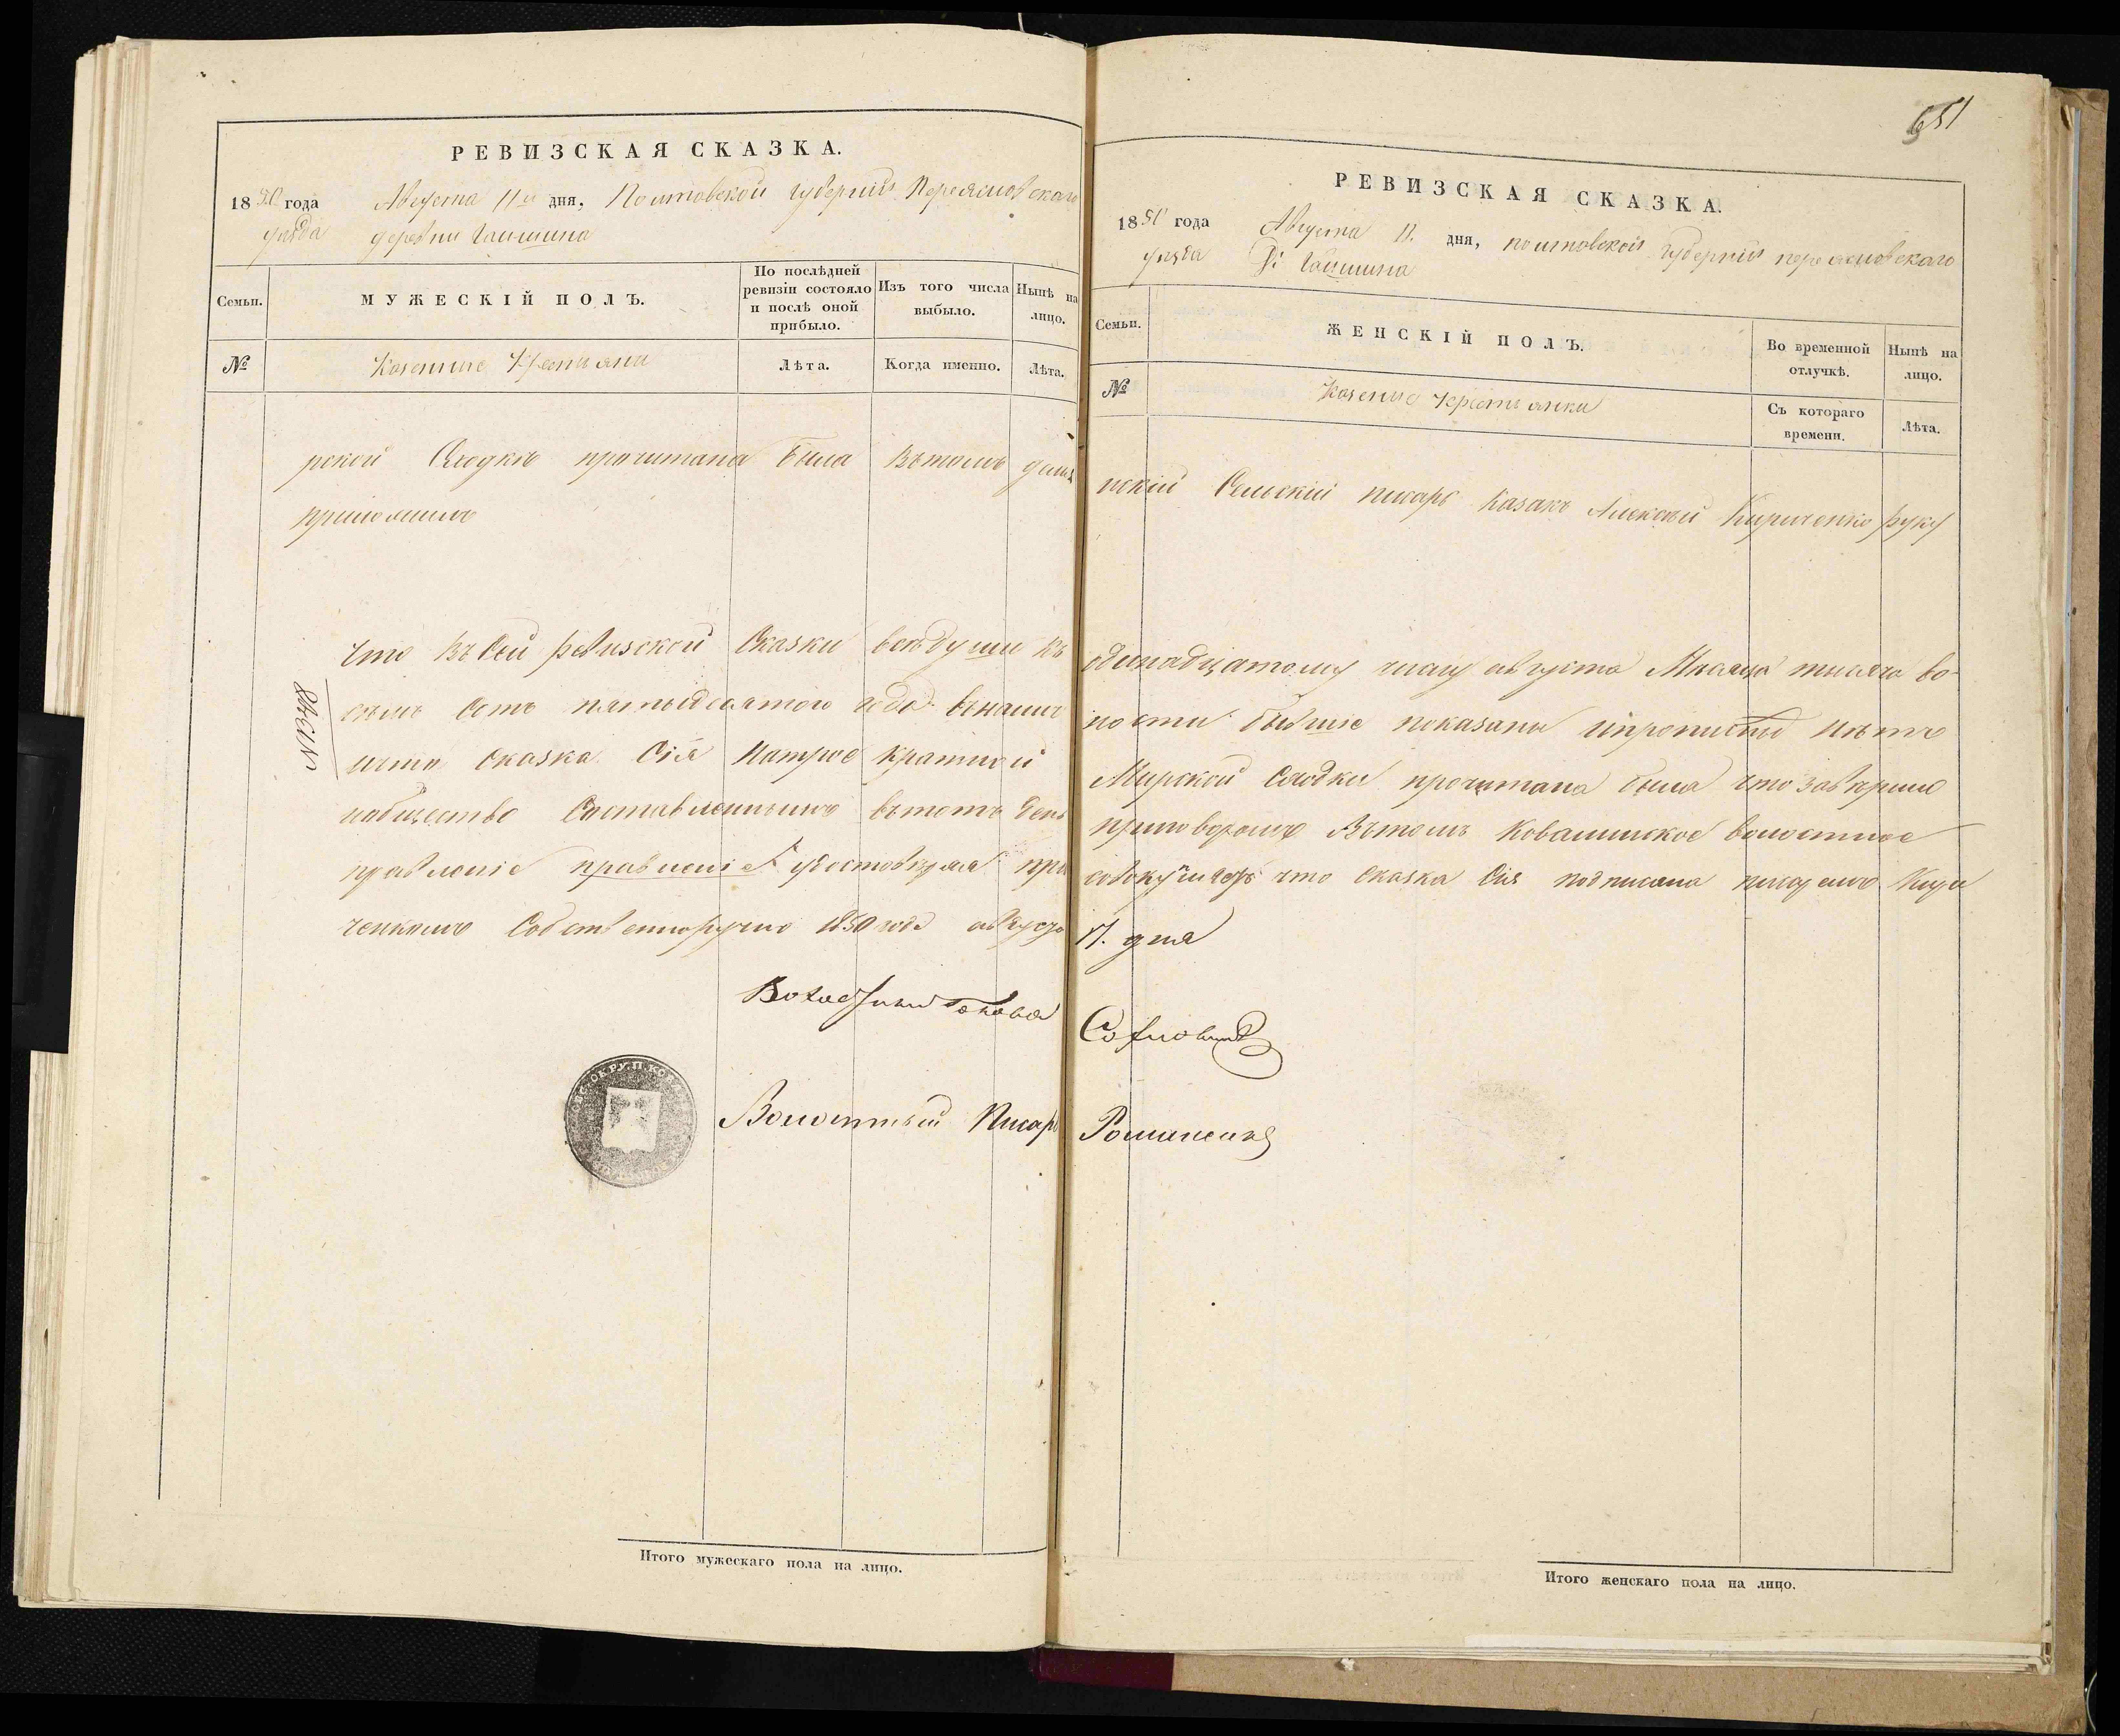 РЕВИЗСКАЯ СКАЗКА.
1850 года Августа 11го дня, Полтавской губернии Переяславскаго
уѣзда деревни Гайшина
Семьи. МУЖЕСКІЙ ПОЛЪ. По послѣдней ревизіи состояло и послѣ оной прибыло. Изъ того числа выбыло. Нынѣ на лицо.
№ Казенные Крестьяни Лѣта. Когда именно. Лѣта.
рской Сходкѣ прочитана была Вътомъ
приложилъ
что въ Сей ревизской Сказки всѣ души къ
семь Сотъ пятьдесятого года внашс
Сказка Сія Натрое кратной
Составленнымъ вътотъ день
правленіе правленіе удостовѣряя при
ченкомъ Собственноручно 1850 года августа
Голова
Волостный Писарь
Итого мужескаго пола на лицо.
651
РЕВИЗСКАЯ СКАЗКА.
1850 года Августа 11. дня, полтавской губерніи переяславскаго
уѣзда Д: Гайшина
Семьи. ЖЕНСКІЙ ПОЛЪ. Во временной отлучкѣ. Нынѣ на лицо.
№ Казенные крестьянки Съ котораго времени. Лѣта.
нскій Сельскій писарь казакъ Алексѣй Кириченко руку
одинадцатому числу августа Мѣсяца тысяча во-
ности бывшие показаны ипрописныхъ нѣтъ
Мирской Сходки прочитана была что завѣрило
приговоромъ Вътомъ Ковалинское волостное
что Сказка Сія подписана писаремъ Кири
11. дня
Романенко
Итого женскаго пола на лицо.